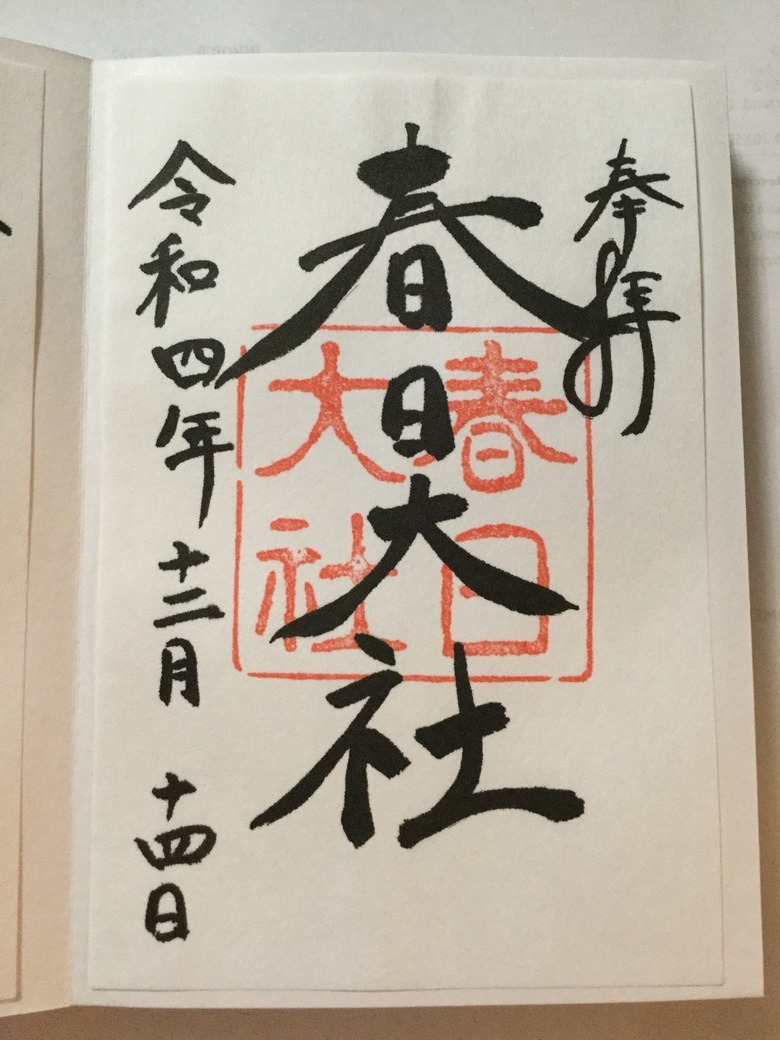 奉拝
春日大社
春日
大社
令和四年十二月十四日